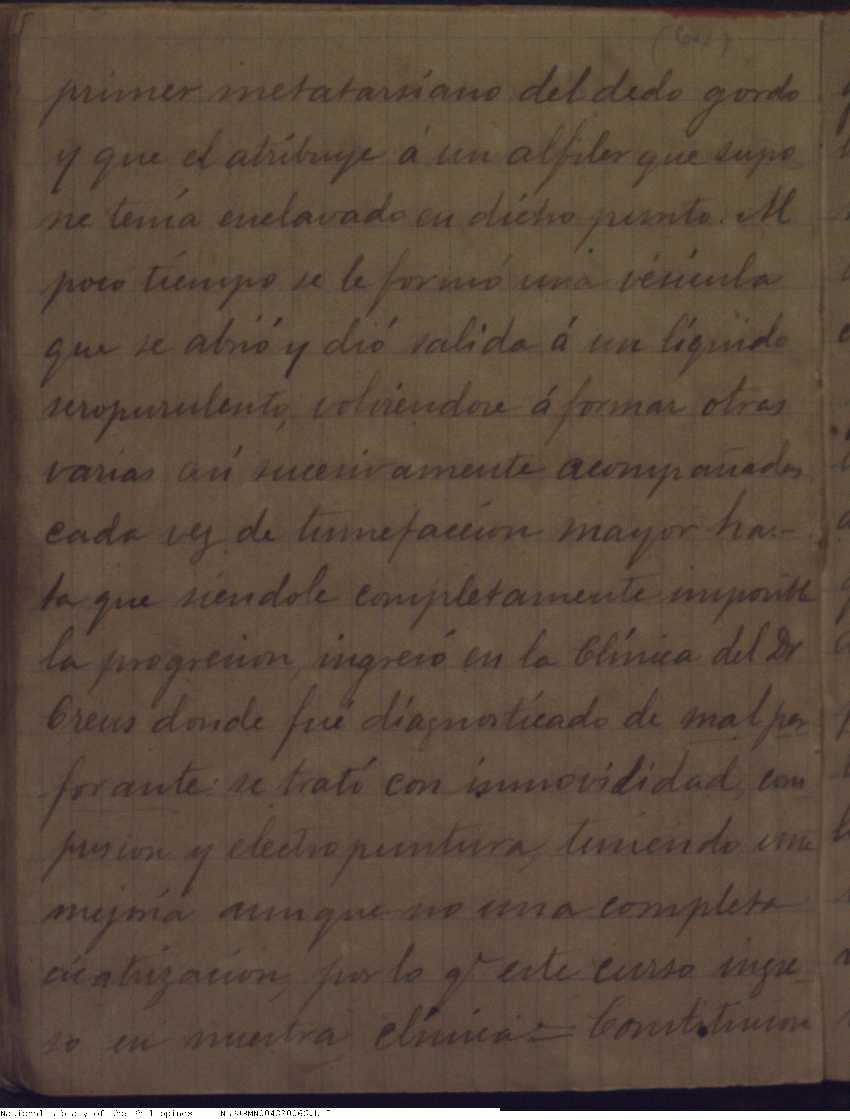 primer metatarsiano del dedo gordo
y que el atribuye á un alfiler que supo
ne tenía enclavado en dicho punto. Al
poco tiempo se le formó una vésicula
que se abrió y dió salida á un líquido
seropurulento, volviendose á formar otras
varias así sucesivamente acompañadas
cada vez de tumefaccion mayor has-
ta que siendole completamente imposible
la progresion, ingresó en la Clínica del Dr
Creus donde fué diagnosticado de mal per
forante: se trató con inmovilidad, com
presion y electropuntura, teniendo una
mejoría aunque no una completa
cicatrizacion, por lo qe este curso ingre-
so en nuestra clínica = Constitucion
National Library of the Philippines